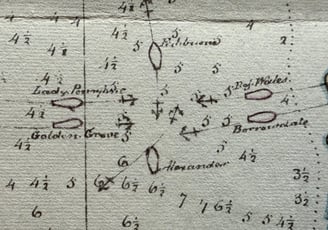 4 1/2
4
4
4 1/2
4 1/2
4 1/2
4 1/2
5
Fishburn
4
2
4 1/2
5
5
5
Lady Penrhyn
5
Pr of Wales
4
Golden Grove
5
5
Borrowdale
4 1/2
5
4 1/2
6
Alexander
5
4 1/2
4
4 1/2
5
6
6 1/2
6 1/2
3 1/2
6
6 1/2
7
7
6 1/2
5
5
4 1/2
3 1/2